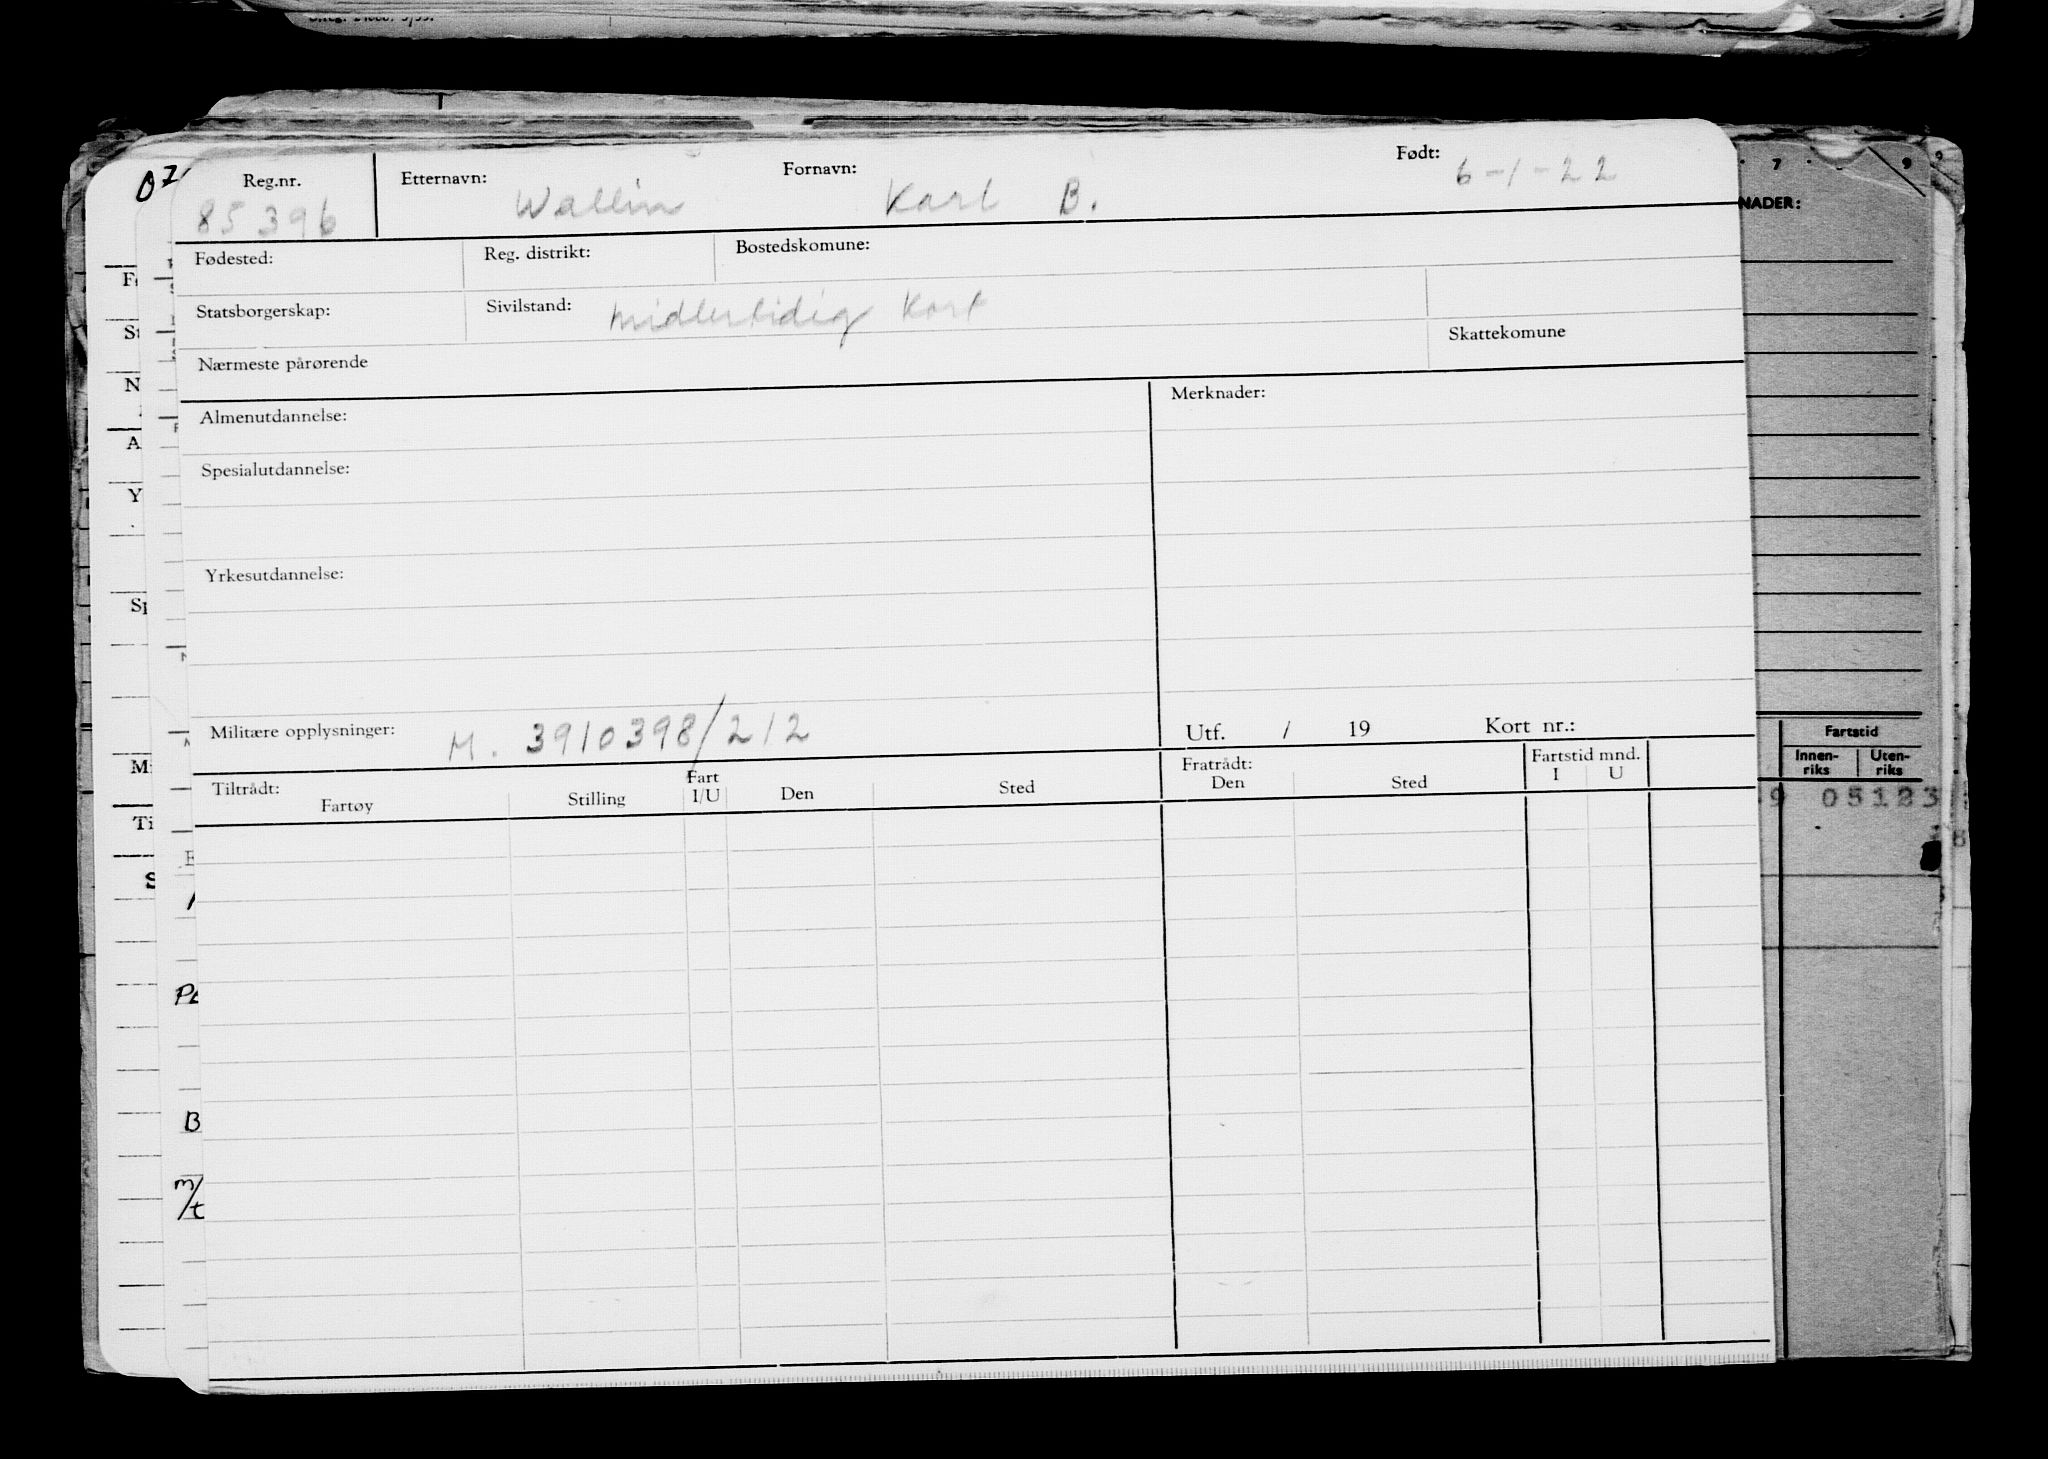 Reg.nr. Etternavn: Fornavn: Født:
85396 Wallin Karl B. 6-1-22
Fødested: Reg. distrikt: Bostedskomune:
Statsborgerskap: Sivilstand: midlertidig kort
Nærmeste pårørende Skattekomune
Almenutdannelse: Merknader:
Spesialutdannelse:
Yrkesutdannelse:
Militære opplysninger: M. 3910398/212 Utf. / 19 Kort nr.:
Tiltrådt: Fratrådt: Fartstid mnd.
Fartøy Stilling Fart I/U Den Sted Den Sted I U
7 9
NADER:
Fartstid
Innen-riks Uten-riks
9 05123
Pa
B
m/t